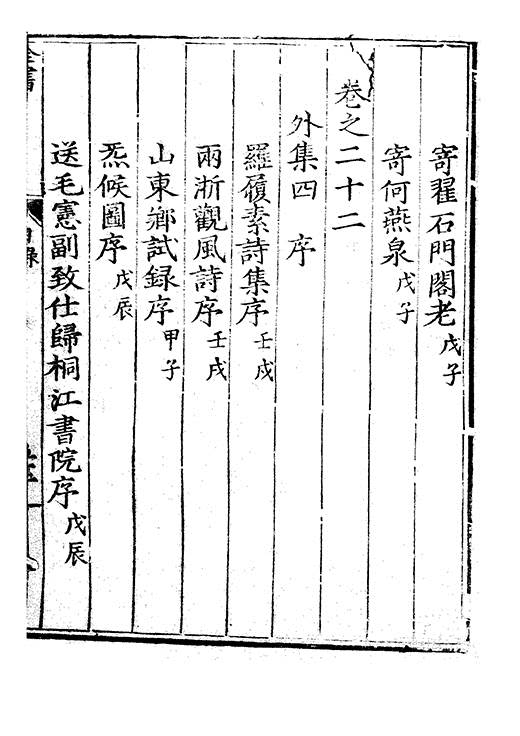 寄翟石門閣老戊子
寄何燕泉戊子
卷之二十二
外集四 序
羅履素詩集序壬戌
兩浙觀風詩序壬戌
山東鄉試録序甲子
炁候圖序戊辰
送毛憲副致仕歸桐江書院序戊辰
全書
目録